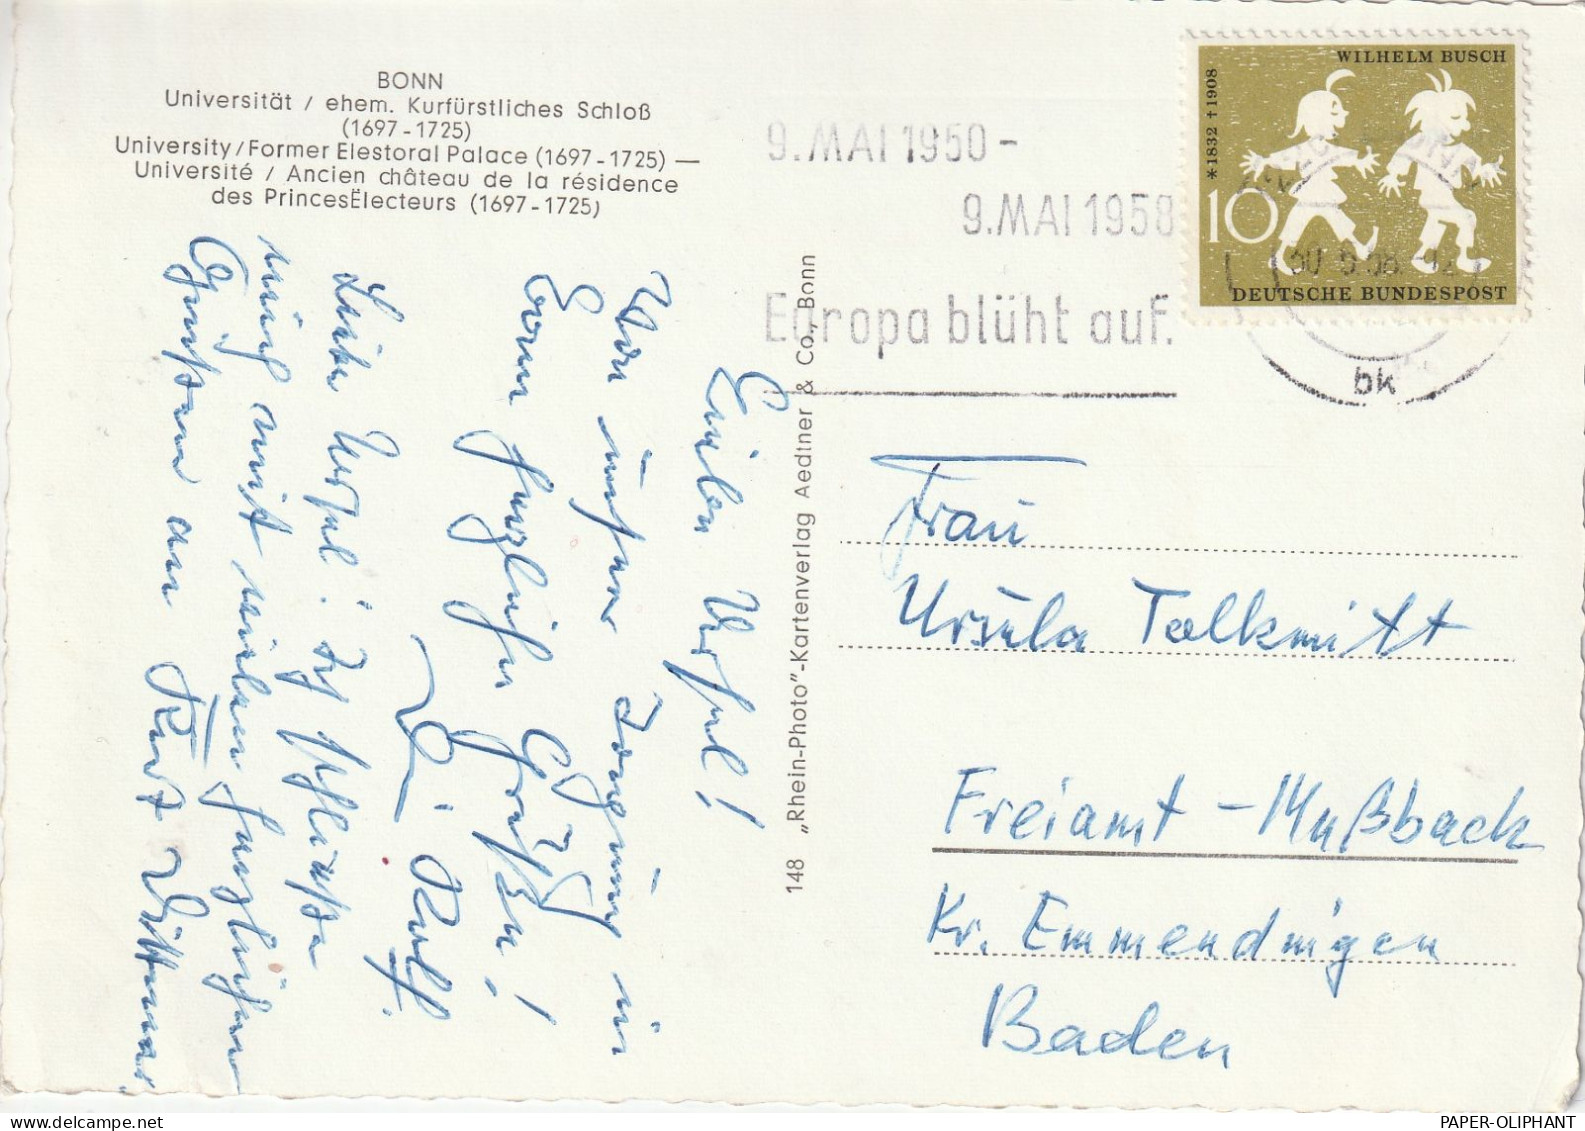 BONN
Universität / ehem. Kurfürstliches Schloß
(1697-1725)
University/Former Elestoral Palace (1697-1725) —
Université / Ancien château de la résidence
des PrincesËlecteurs (1697-1725)
9. MAI 1950 -
9. MAI 1958
Europa blüht auf.
WILHELM BUSCH
* 1832 † 1908
10
DEUTSCHE BUNDESPOST
bk
148 „Rhein-Photo"-Kartenverlag Aedtner & Co., Bonn
Liebe Ursel!
Von unserer Tagung in
Bonn herzliche Grüße!
Rolf.
Liebe Ursel! Ich schließe
mich mit meinen herzlichen
Grüßen an
Frau
Ursula Talkmitt
Freiamt - Mußback
Kr. Emmendingen
Baden
PAPER-OLIPHANT